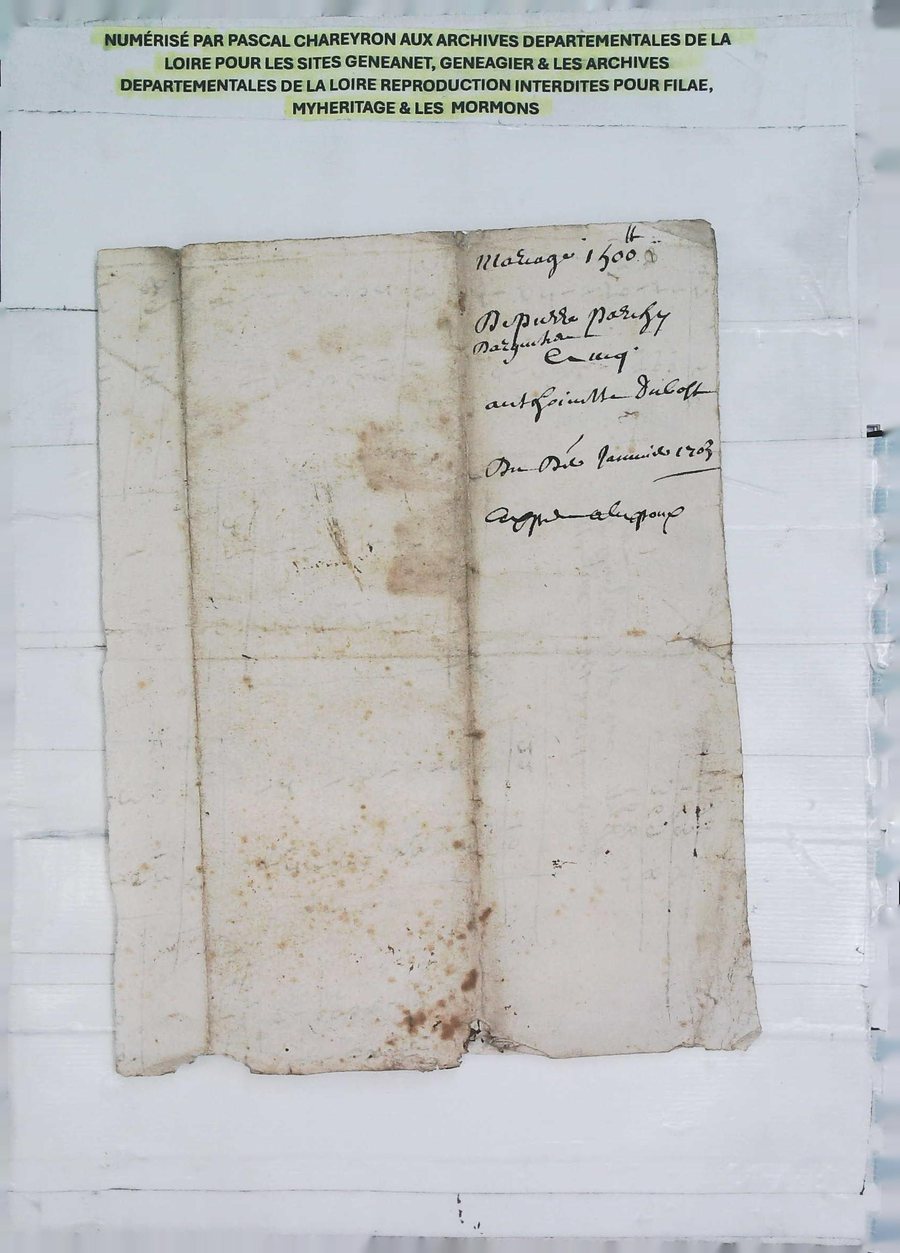 NUMÉRISÉ PAR PASCAL CHAREYRON AUX ARCHIVES DEPARTEMENTALES DE LA
LOIRE POUR LES SITES GENEANET, GENEAGIER & LES ARCHIVES
DEPARTEMENTALES DE LA LOIRE REPRODUCTION INTERDITES POUR FILAE,
MYHERITAGE & LES MORMONS
Mariage 1500 ₶
De pierre
anthoinette Dubost
Du Janvier 1703